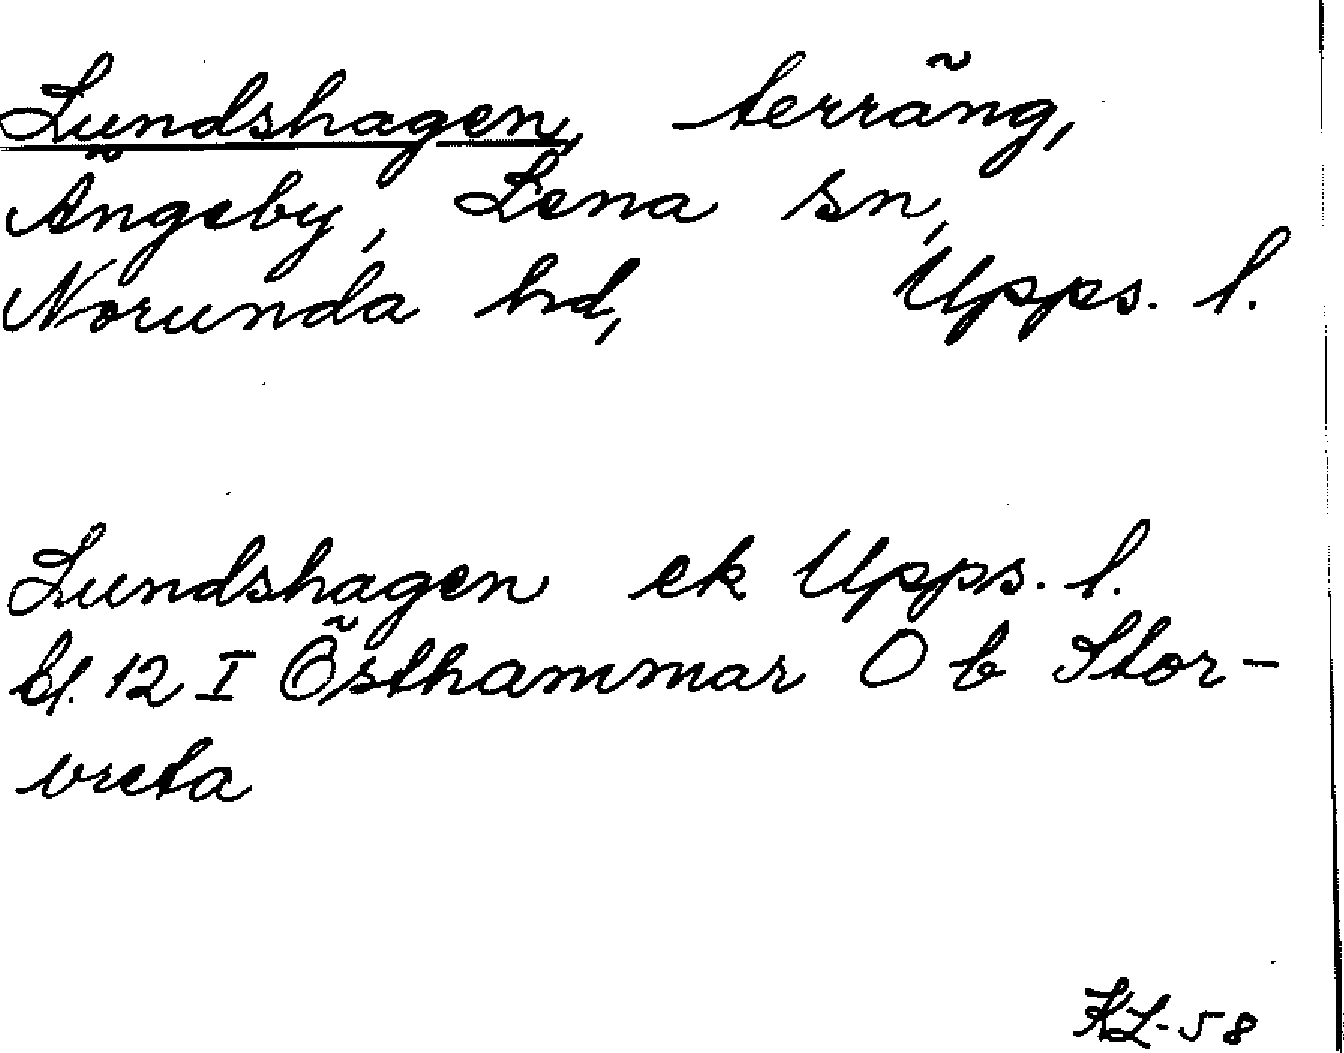 Lundshagen, terräng,
Ängeby, Lena sn,
Norunda hd, Upps. l.
Lundshagen ek Upps. l.
bl. 12 I Östhammar O b Stor-
vreta
KL-58